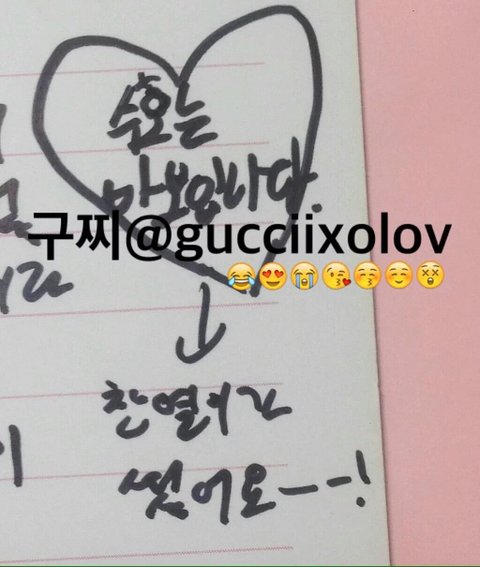 수호는
바보입니다.
구찌@gucciixolov
😂😍😭😘😚☺😲
찬열이가
썻어요--!